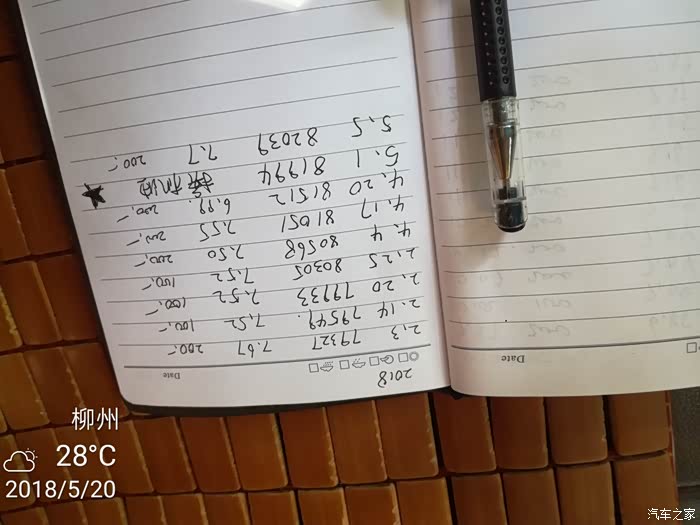 2018
Date
2,3 79327 7.67 200.-
2.14 79549. 7,52 100.-
2,20 79933 7.52 100.-
2,25 80305 7.52 100.-
4,4 80568 7.50 200.-
4.17 81051 7.55 200.-
4.20 81512 6.99. 200.-
5.1 81994 换机油
5,5 82039 7.7 200.-
Date
柳州
28°C
2018/5/20
汽车之家